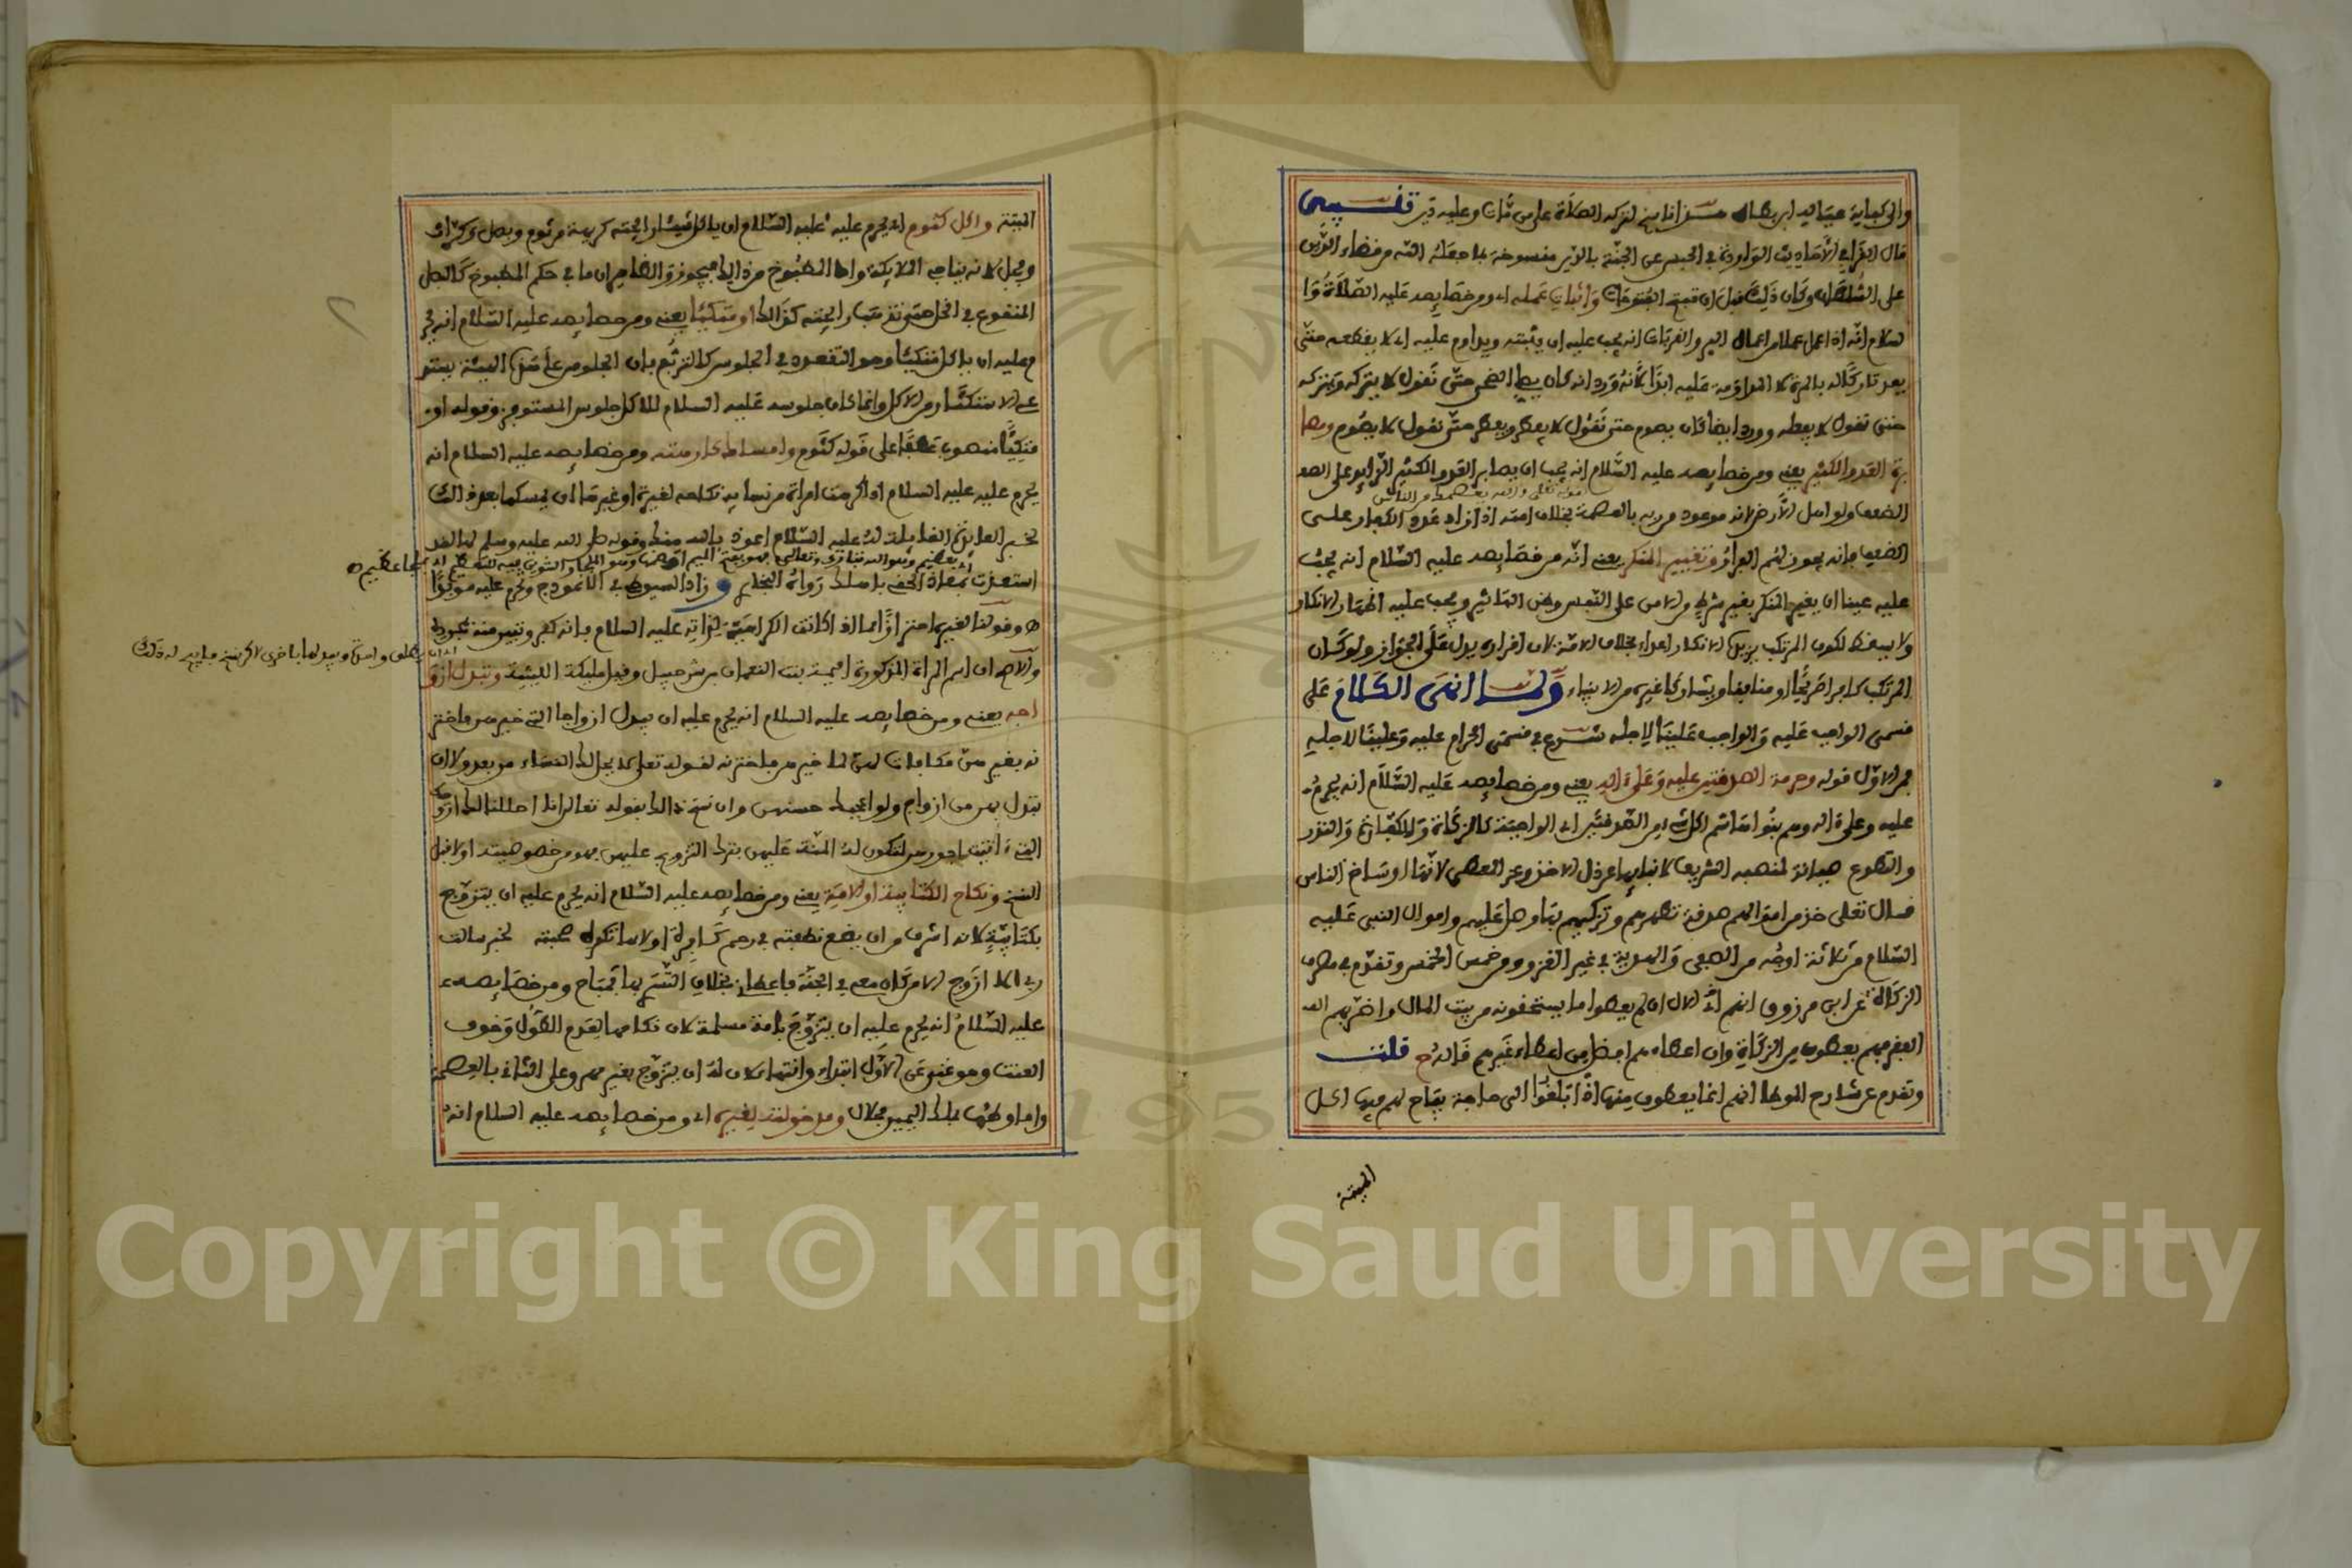 قال القرافي الأحاديث الواردة في الحبس عن الجنة بالدين منسوخة بما جعله الله من قضاء الدين
على السلطان وكان ذلك قبل أن تفتح الفتوحات وإثبات عمله أي ومن خصايصه عليه الصلاة وا
لسلام أنه إذا عمل عملا من أعمال البر والقربات أنه يجب عليه أن يثبته ويداوم عليه أي لا يقطعه حتى
يعد تاركا له بالمرة لا المداومة عليه أبدا لأنه ورد أنه كان يصلي الضحى حتى نقول لا يتركه ويتركه
حتى نقول لا يصليه وورد أيضا كان يصوم حتى نقول لا يفطر ويفطر حتى نقول لا يصوم ومصا
برة العدو الكثير يعني ومن خصايصه عليه السلام أنه يجب أن يصابر العدو الكثير الزايد على الضعف
قوله تعالى والله يعصمك من الناس
الضعف ولو أهل الأرض لأنه موعود من ربه بالعصمة بخلاف أمته إذا زاد عدد الكفار على
الضعف فإنه يجوز لهم الفرار وتغيير المنكر يعني أنه من خصايصه عليه السلام أنه يجب
عليه عينا أن يغير المنكر بغير شرط والأمن على النفس وظن التأثير ويجب عليه إظهار الإنكار
ولا يسقط لكون المرتكب يزيده الإنكار إغراء بخلاف الأمة لأن إقراره يدل على الجواز ولو كان
المرتكب كافرا حربيا أو منافقا ويشاركه غيره من الأنبياء ولما انهى الكلام على
قسمي الواجب عليه والواجب علينا لأجله شرع في قسمي الحرام عليه وعلينا لأجله
فمن الأول قوله وحرمة الصدقتين عليه وعلى آله يعني ومن خصايصه عليه السلام أنه يحرم
عليه وعلى آله وهم بنو هاشم أكل شيء من الصدقتين أي الواجبة كالزكاة والكفارة والنذر
والتطوع صيانة لمنصبه الشريف لإنبائها عن ذل الآخذ وعز المعطي لأنها أوساخ الناس
قال تعالى خذ من أموالهم صدقة تطهرهم وتزكيهم بها وصل عليهم وأموال النبي عليه
السلام من ثلاثة أوجه من الصفي والهدية في غير الغزو ومن خمس الخمس وتقدم في مصرف
الزكاة عن ابن مرزوق أنهم الآن إن لم يعطوا ما يستحقونه من بيت المال وأضر بهم
الفقر فهم يعطون من الزكاة وإن إعطاءهم أفضل من إعطاء غيرهم قاله ح قلت
وتقدم عن شارح الموطا أنهم إنما يعطون منها إذا بلغوا إلى حاجة يباح لهم فيها أكل
الميتة
الميتة وأكل كثوم أي يحرم عليه عليه السلام أن يأكل شيئا رايحته كريهة من ثوم وبصل وكراث
وفجل لأنه يناجي الملايكة وأما المطبوخ من ذلك فيجوز والظاهر أن ما في حكم المطبوخ كالبصل
المنقوع في الخل حتى تذهب رايحته كذلك أو متكئا يعني ومن خصايصه عليه السلام أنه يحر
م عليه أن يأكل متكئا وهو التقعدد في الجلوس كالتربع فإن الجلوس على هذه الهيئة يستد
عي الاستكثار من الأكل وإنما كان جلوسه عليه السلام للأكل جلوس المستوفز وقوله أو
متكئا منصوب عطفا على قوله كثوم وإمساك كارهته ومن خصايصه عليه السلام أنه
يحرم عليه عليه السلام إذا كرهت امرأة من نسايه نكاحه لغيرة أو غيرها أن يمسكها بعد ذلك
لخبر العايذة القايلة له عليه السلام أعوذ بالله منك وقوله صلى الله عليه وسلم لها لقد
استعذت بمعاذ الحقي بأهلك رواه البخاري و زاد السيوطي في الأنموذج وتحرم عليه مؤبدا
ه وقولنا لغيره احترازا مما إذا كانت الكراهية لذاته عليه السلام فإنه كفر وتبين منه بمجرد
والأصح أن اسم المرأة المذكورة أميمة بنت النعمان بن شرحبيل وقيل مليكة الليثية وتبدل أزوا
جه يعني ومن خصايصه عليه السلام أنه يحرم عليه أن يبدل أزواجه التي خيرهن فاختر
نه بغيرهن مكافأة لهن لما خيرهن فاخترنه لقوله تعالى لا يحل لك النساء من بعد ولا أن
تبدل بهن من أزواج ولو أعجبك حسنهن وإن نسخ ذلك بقوله تعالى إنا أحللنا لك أزواجك
التي آتيت أجورهن لتكون له المنة عليهن بترك التزويج عليهن فهو من خصوصيته أولا قبل
النسخ ونكاح الكتابية أو الأمة يعني ومن خصايصه عليه السلام أنه يحرم عليه أن يتزوج
بكتابية لأنه أشرف من أن يضع نطفته في رحم كافرة أو لأنها تكره صحبته لخبر سألت
ربي ألا أزوج إلا من كان معي في الجنة فأعطاني بخلاف التسري بها فمباح ومن خصايصه
عليه السلام أنه يحرم عليه أن يتزوج بأمة مسلمة لأن نكاحها لعدم الطول وخوف
العنت وهو غني عن الأول ابتداء وانتهاء لأن له أن يتزوج بغير مهر وعلى الثاني بالعصمة
وأما وطئها بملك اليمين فحلال ومدخولته لغيره أي ومن خصايصه عليه السلام أنه